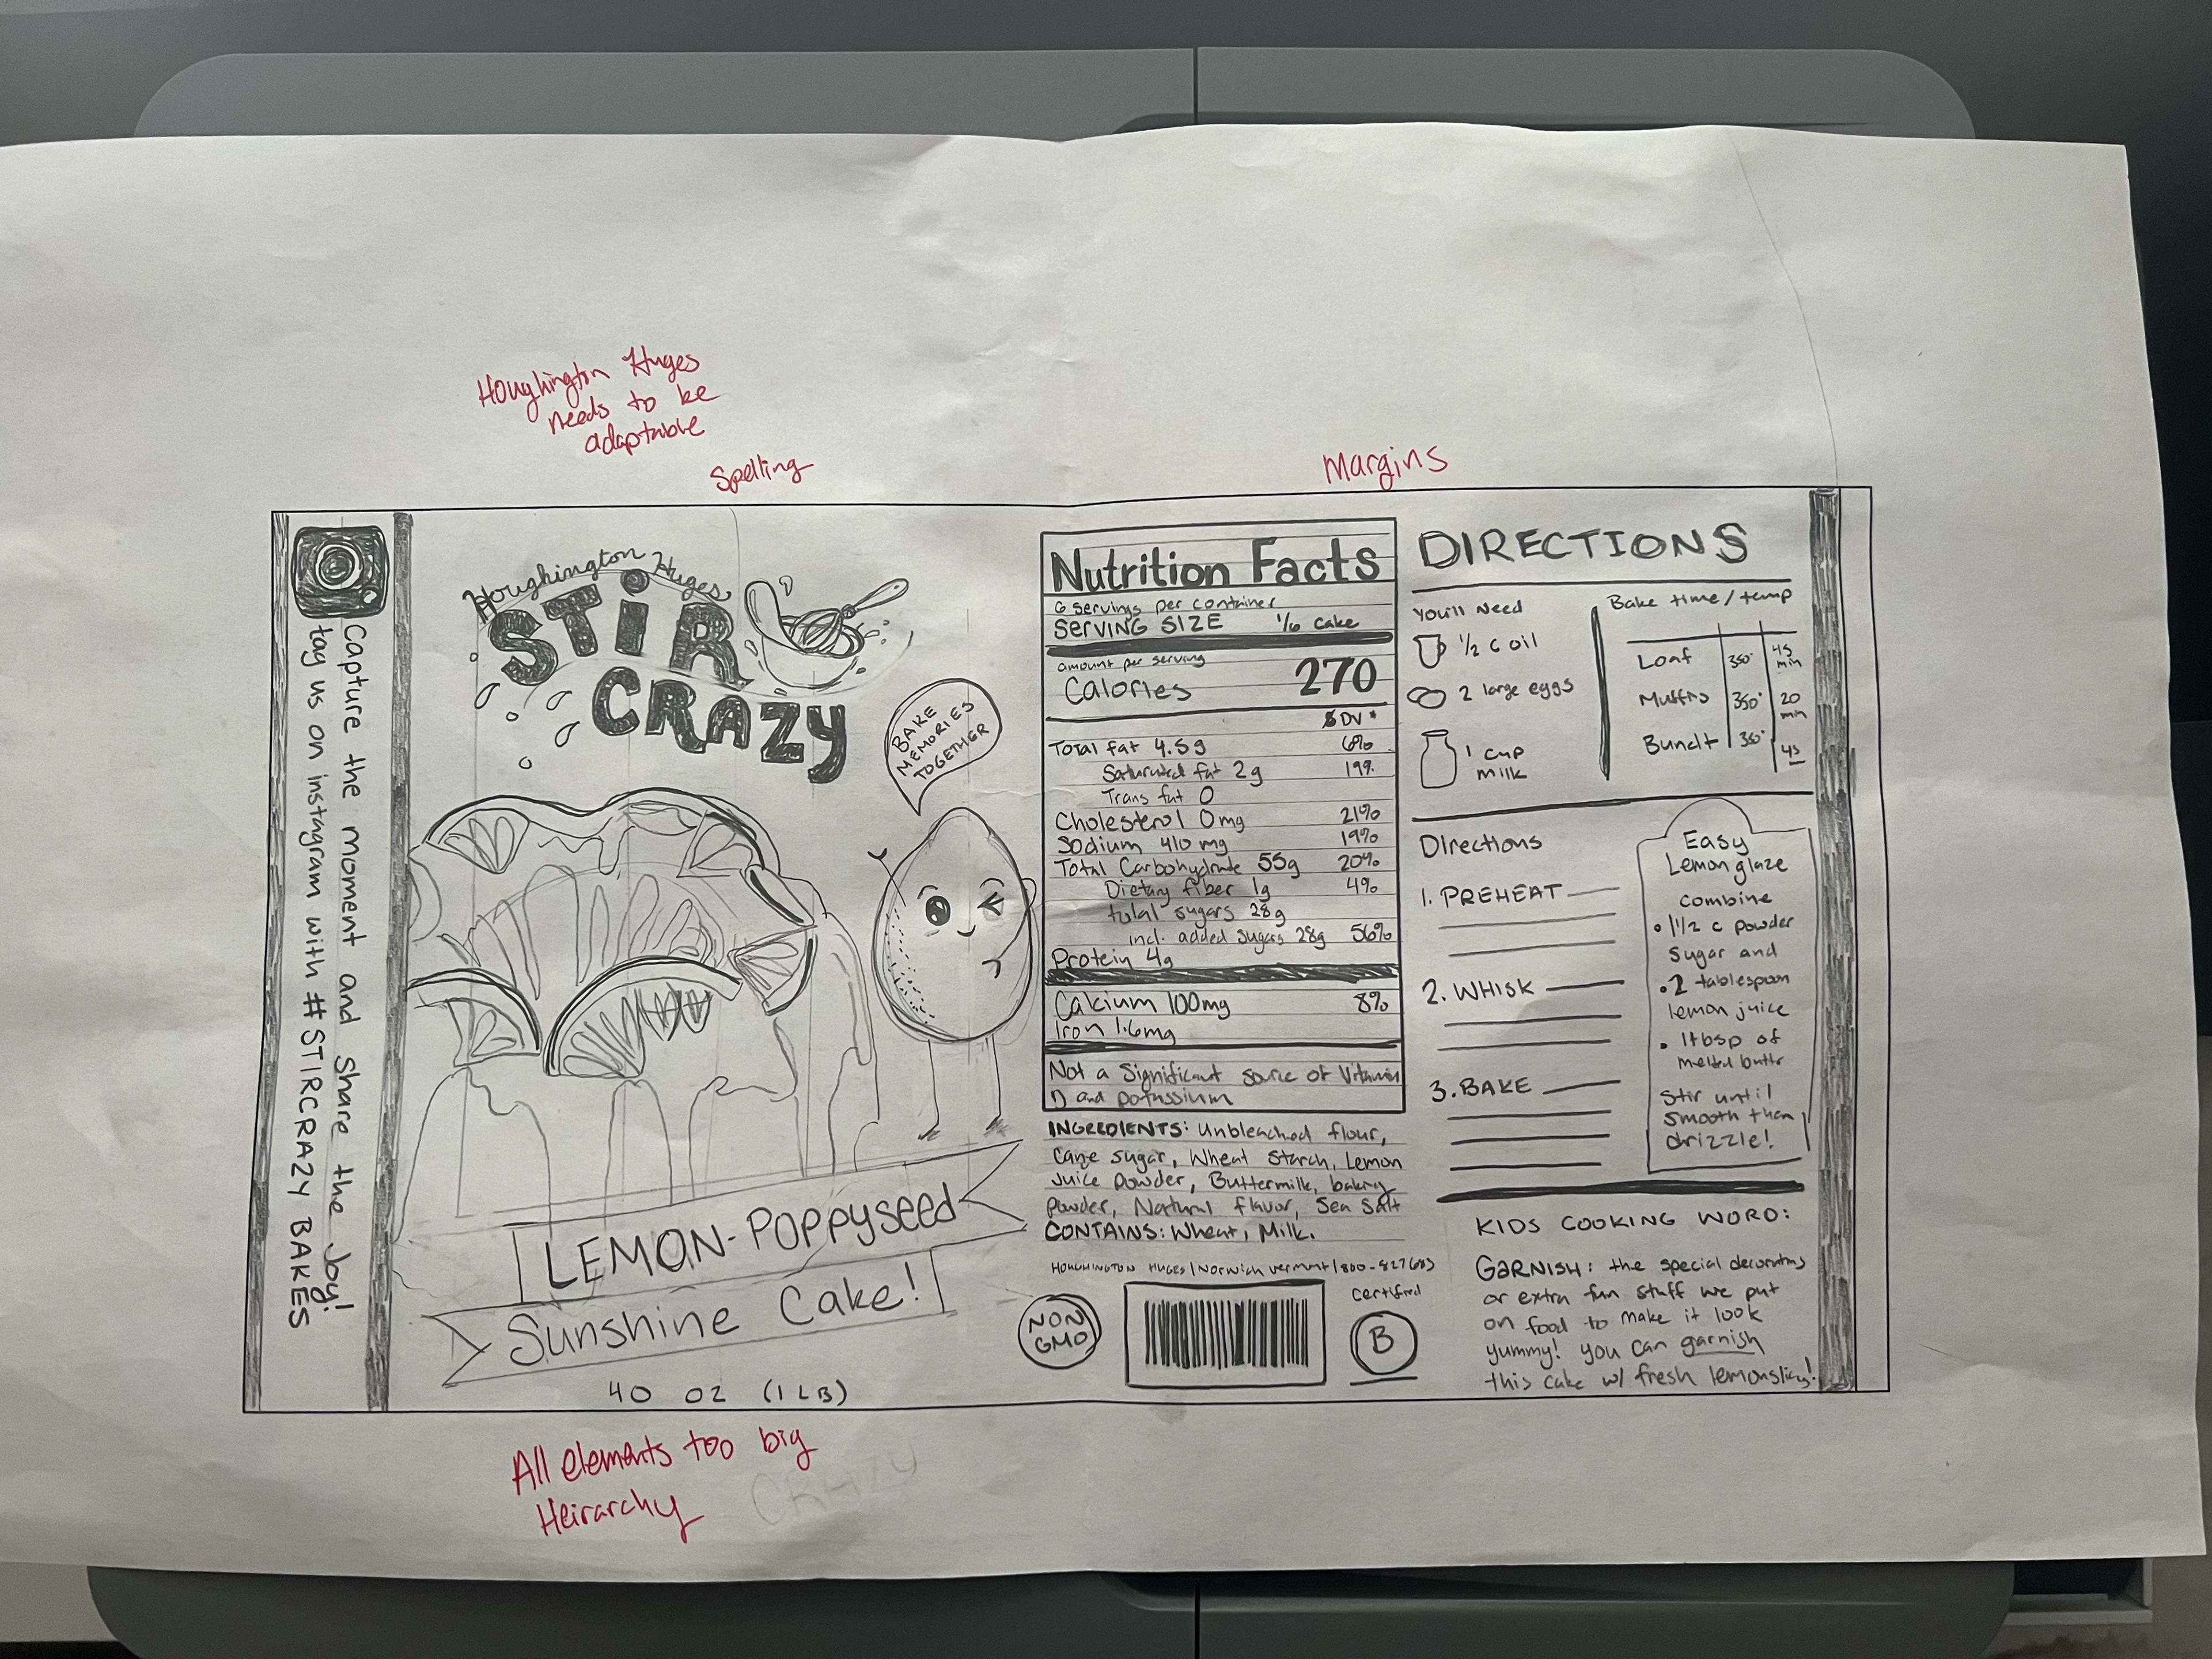 Houghington Huges
needs to be
adaptable
Spelling
Margins
Capture the moment and share the Joy!
tag us on instagram with #STIRCRAZY BAKES
Houghington Huges
STIR
CRAZY
BAKE
MEMORIES
TOGETHER
LEMON-POPPYSEED
Sunshine Cake!
40 OZ (1 LB)
Nutrition Facts
6 servings per container
SERVING SIZE 1/6 cake
amount per serving
Calories 270
DV *
Total fat 4.5g 6%
Saturated fat 2g 19%
Trans fat 0
Cholesterol 0mg 21%
Sodium 410 mg 19%
Total Carbohydrate 55g 20%
Dietary fiber 1g 4%
total sugars 28g
incl. added sugars 28g 56%
Protein 4g
Calcium 100mg 8%
Iron 1.6mg
Not a Significant source of Vitamin
D and potassium
INGREDIENTS: Unbleached flour,
Cane sugar, Wheat Starch, Lemon
Juice powder, Buttermilk, baking
powder, Natural flavor, Sea Salt
CONTAINS: Wheat, Milk.
HOUGHINGTON HUGES | Norwich vermont |
NON
GMO
Certified
B
DIRECTIONS
You'll Need
1/2 c oil
2 large eggs
1 cup
milk
Bake time/temp
Loaf 350° 45 min
Muffns 350° 20 min
Bundt 350° 45
Directions
1. PREHEAT
2. WHISK
3. BAKE
Easy
Lemon glaze
combine
• 1 1/2 c powder
sugar and
• 2 tablespoon
lemon juice
• 1 tbsp of
melted buttr
Stir until
smooth then
drizzle!
KIDS COOKING WORD:
GARNISH: the special decorations
or extra fun stuff we put
on food to make it look
yummy! you can garnish
this cake w/ fresh lemonslices!
All elements too big
Heirarchy
CRAZY